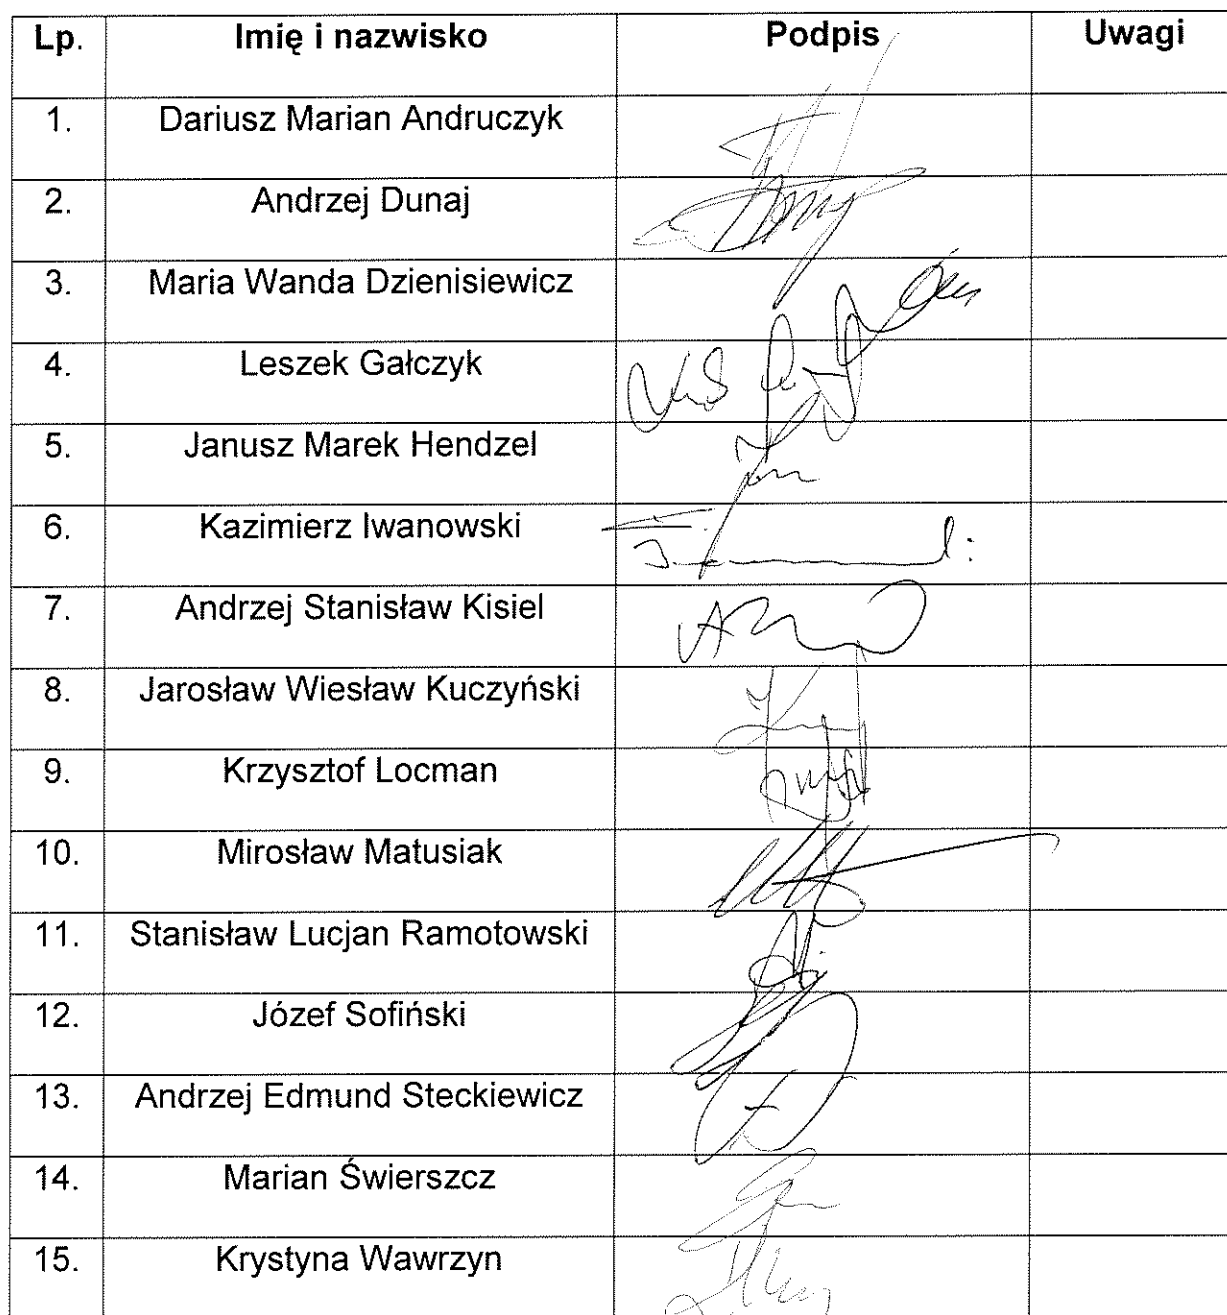 Lp. Imię i nazwisko Podpis Uwagi
1. Dariusz Marian Andruczyk
2. Andrzej Dunaj
3. Maria Wanda Dzienisiewicz
4. Leszek Gałczyk
5. Janusz Marek Hendzel
6. Kazimierz Iwanowski
7. Andrzej Stanisław Kisiel
8. Jarosław Wiesław Kuczyński
9. Krzysztof Locman
10. Mirosław Matusiak
11. Stanisław Lucjan Ramotowski
12. Józef Sofiński
13. Andrzej Edmund Steckiewicz
14. Marian Świerszcz
15. Krystyna Wawrzyn